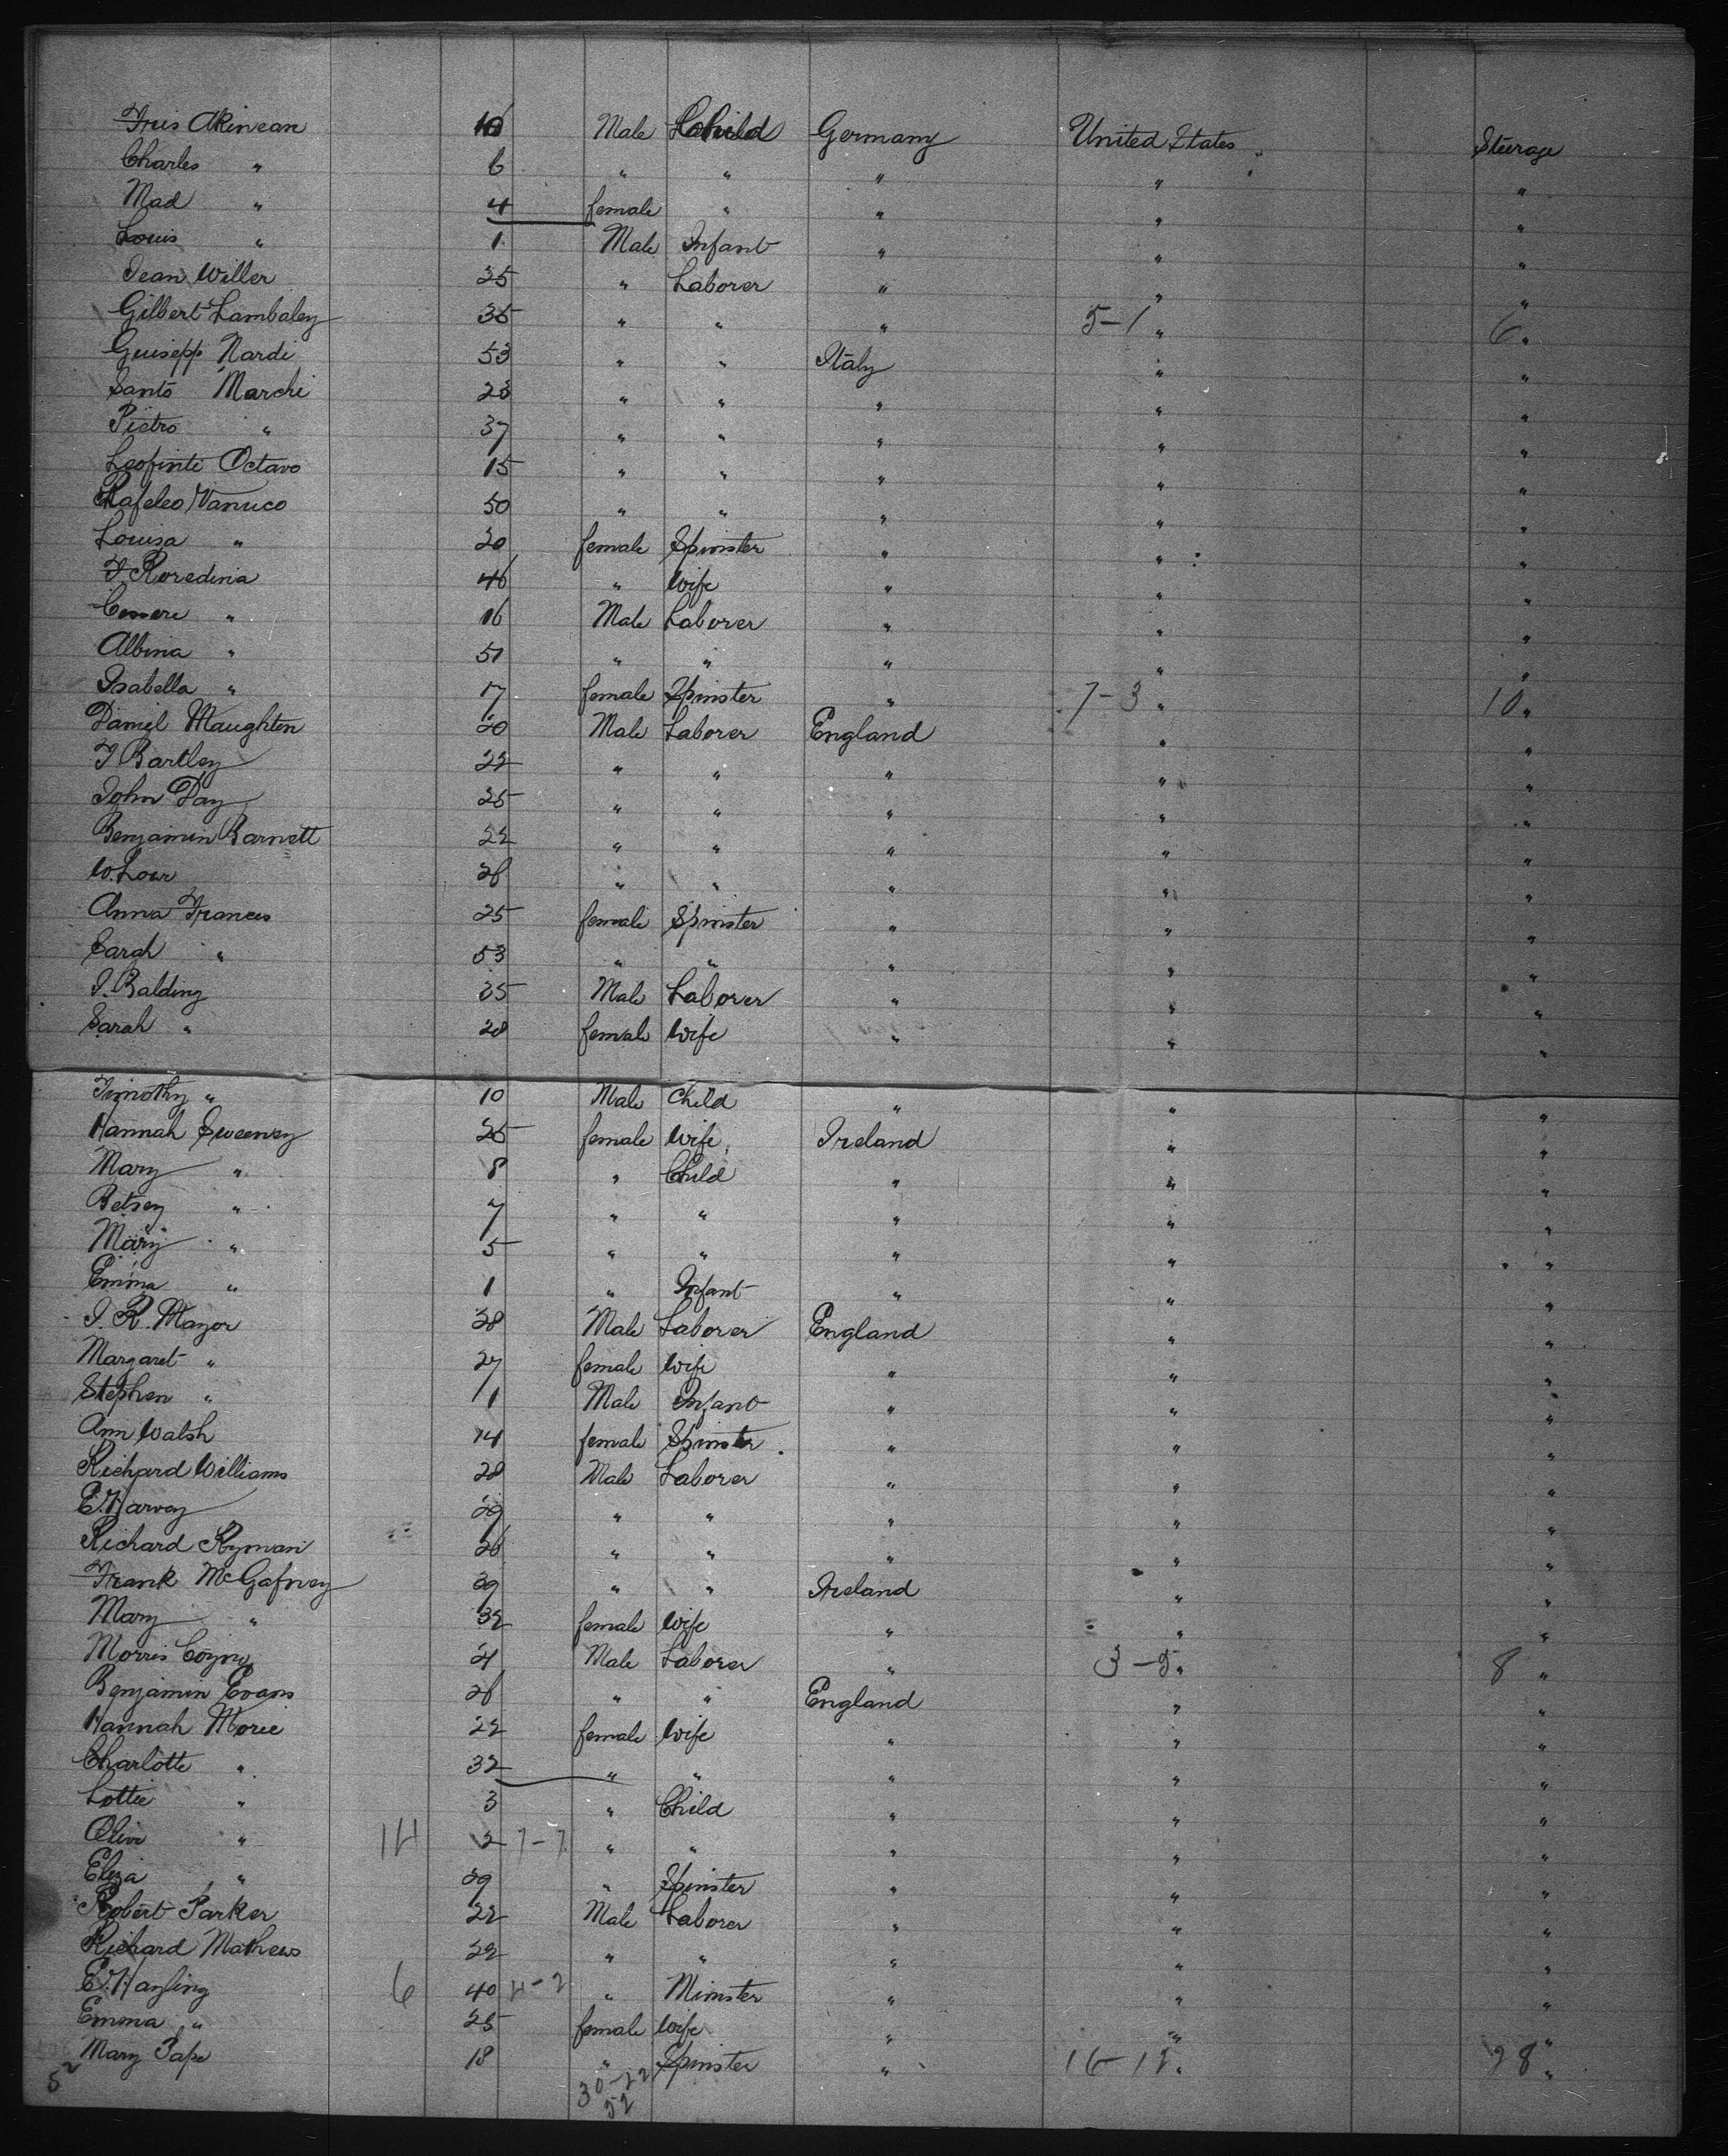 Fris Akinean 10 Male Child Germany United States Steerage
Charles " 6 " " " " "
Mad " 4 female " " " "
Louis " 1 Male Infant " " "
Jean Willer 25 " Laborer " " "
Gilbert Lambaley 35 " " " 5-1 " 6 "
Guisepp Nardi 53 " " Italy " "
Santo Marchi 23 " " " " "
Pietro " 37 " " " " "
Leofinte Octavo 15 " " " " "
Rafeleo Vanuco 50 " " " " "
Louisa " 20 female Spinster " " "
F. Roredina 46 " Wife " " "
Cesere " 16 Male Laborer " " "
Albina " 51 " " " " "
Isabella " 17 female Spinster " 7-3 " 10 "
Daniel Maughten 20 Male Laborer England " "
T Bartley 22 " " " " "
John Day 25 " " " " "
Benjamin Barnett 22 " " " " "
W. Lowr 26 " " " " "
Anna Frances 25 female Spinster " " "
Sarah " 53 " " " " "
J. Balding 35 Male Laborer " " "
Sarah " 28 female Wife " " "
Timothy " 10 Male Child " " "
Hannah Sweeney 25 female Wife Ireland " "
Mary " 8 " Child " " "
Betsey " 7 " " " " "
Mary " 5 " " " " "
Emma " 1 " Infant " " "
J. R. Mayor 28 Male Laborer England " "
Margaret " 27 female Wife " " "
Stephen " 1 Male Infant " " "
Ann Walsh 14 female Spinster " " "
Richard Williams 28 Male Laborer " " "
E. Harvey 29 " " " " "
Richard Ryman 26 " " " " "
Frank McGafney 39 " " Ireland " "
Mary " 32 female Wife " " "
Morris Coyne 21 Male Laborer " 3-5 " 8 "
Benjamin Evans 26 " " England " "
Hannah Morie 22 female Wife " " "
Charlotte " 32 " " " " "
Lottie " 3 " Child " " "
Olive " 14 2 7-7 " " " " "
Eliza " 29 " Spinster " " "
Robert Parker 22 Male Laborer " " "
Richard Mathews 22 " " " " "
E. Hayling 6 40 4-2 " Minster " " "
Emma " 25 female Wife " " "
Mary Pape 18 " Spinster " 16-12 " 28 "
52 30-22
52